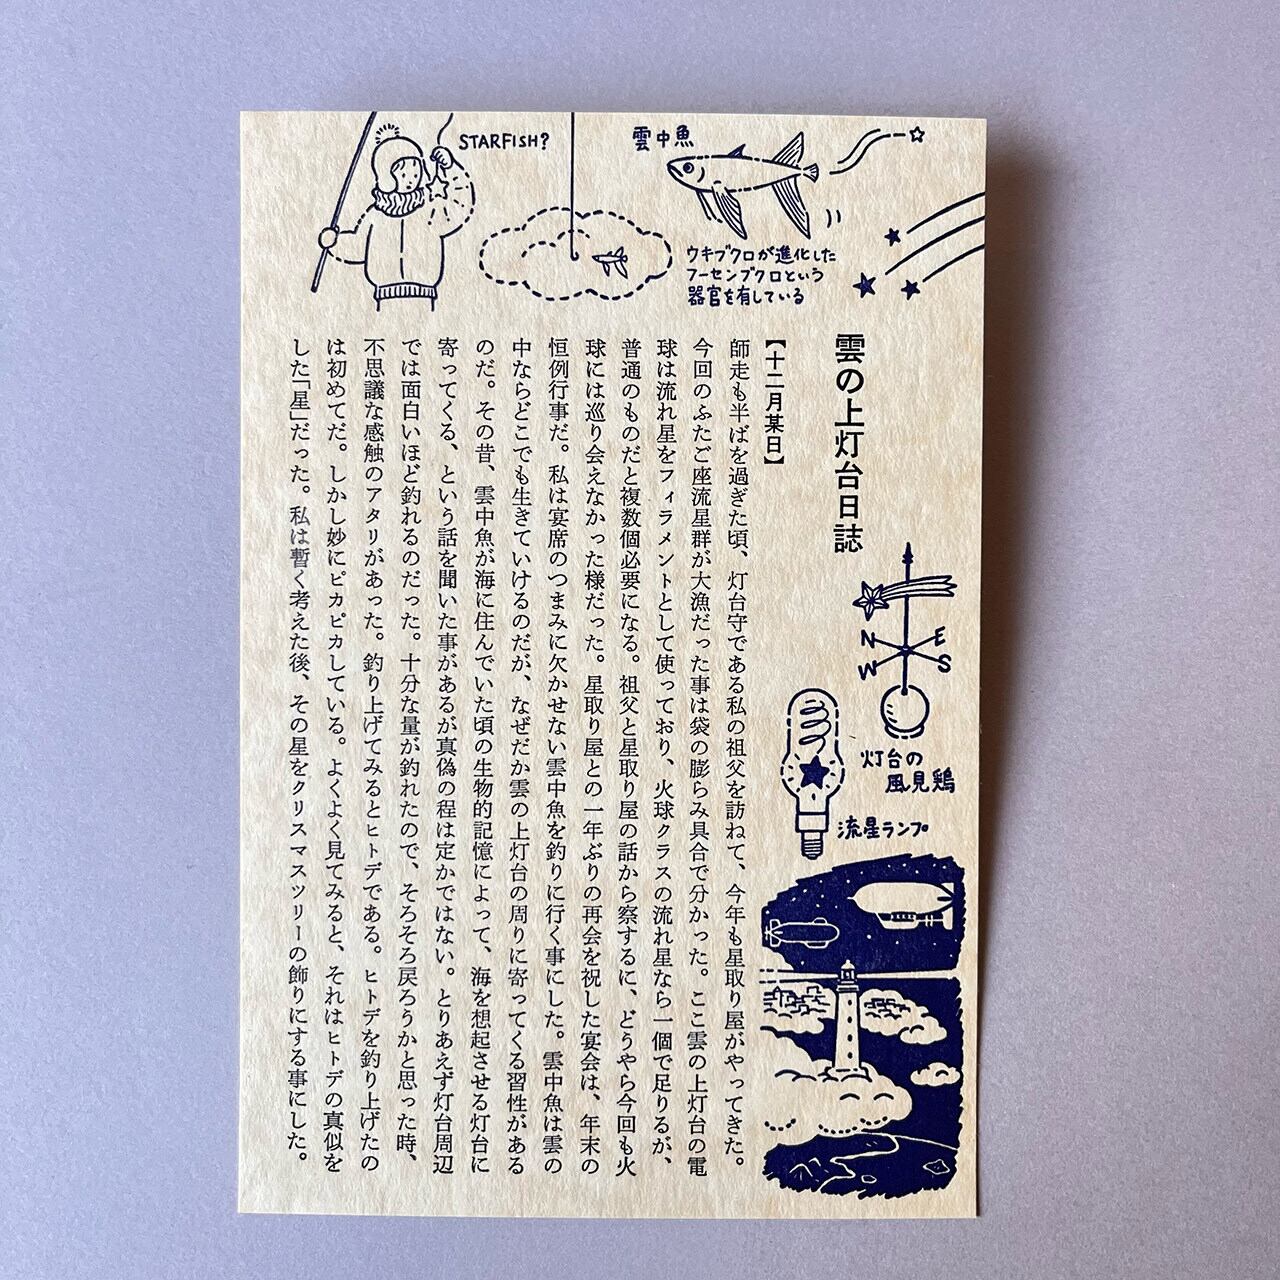 STARFISH?
雲中魚
ウキブクロが進化した
フーセンブクロという
器官を有している
雲の上灯台日誌
N
E
W
S
灯台の
風見鶏
流星ランプ
【十二月某日】
師走も半ばを過ぎた頃、灯台守である私の祖父を訪ねて、今年も星取り屋がやってきた。
今回のふたご座流星群が大漁だった事は袋の膨らみ具合で分かった。ここ雲の上灯台の電
球は流れ星をフィラメントとして使っており、火球クラスの流れ星なら一個で足りるが、
普通のものだと複数個必要になる。祖父と星取り屋の話から察するに、どうやら今回も火
球には巡り会えなかった様だった。星取り屋との一年ぶりの再会を祝した宴会は、年末の
恒例行事だ。私は宴席のつまみに欠かせない雲中魚を釣りに行く事にした。雲中魚は雲の
中ならどこでも生きていけるのだが、なぜだか雲の上灯台の周りに寄ってくる習性がある
のだ。その昔、雲中魚が海に住んでいた頃の生物的記憶によって、海を想起させる灯台に
寄ってくる、という話を聞いた事があるが真偽の程は定かではない。とりあえず灯台周辺
では面白いほど釣れるのだった。十分な量が釣れたので、そろそろ戻ろうかと思った時、
不思議な感触のアタリがあった。釣り上げてみるとヒトデである。ヒトデを釣り上げたの
は初めてだ。しかし妙にピカピカしている。よくよく見てみると、それはヒトデの真似を
した「星」だった。私は暫く考えた後、その星をクリスマスツリーの飾りにする事にした。